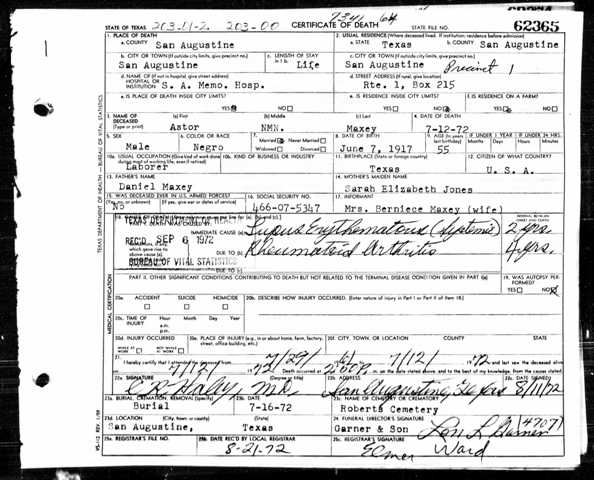 7341 64
STATE OF TEXAS 203-11-2 203-00 CERTIFICATE OF DEATH STATE FILE NO. 62365
1. PLACE OF DEATH 2. USUAL RESIDENCE (Where deceased lived. If institution, residence before admission)
a. COUNTY San Augustine a. STATE Texas b. COUNTY San Augustine
b. CITY OR TOWN (If outside city limits, give precinct no.) c. LENGTH OF STAY in 1 b. c. CITY OR TOWN (If outside city limits, give precinct no.)
San Augustine Life San Augustine Precinct 1
d. NAME OF (If not in hospital, give street address) HOSPITAL OR INSTITUTION S. A. Memo. Hosp. d. STREET ADDRESS (If rural, give location) Rte. 1, Box 215
e. IS PLACE OF DEATH INSIDE CITY LIMITS? e. IS RESIDENCE INSIDE CITY LIMITS? f. IS RESIDENCE ON A FARM?
YES NO YES NO YES NO
3. NAME OF DECEASED (Type or print) (a) First (b) Middle (c) Last 4. DATE OF DEATH
Astor NMN. Maxey 7-12-72
5. SEX 6. COLOR OR RACE 7. Married Never Married Widowed Divorced 8. DATE OF BIRTH 9. AGE (In years last birthday) IF UNDER 1 YEAR IF UNDER 24 HRS.
Male Negro June 7, 1917 55 Months Days Hours Minutes
10a. USUAL OCCUPATION (Give kind of work done during most of working life, even if retired) 10b. KIND OF BUSINESS OR INDUSTRY 11. BIRTHPLACE (State or foreign country) 12. CITIZEN OF WHAT COUNTRY?
Laborer Texas U. S. A.
13. FATHER'S NAME 14. MOTHER'S MAIDEN NAME
Daniel Maxey Sarah Elizabeth Jones
15. WAS DECEASED EVER IN U.S. ARMED FORCES? 16. SOCIAL SECURITY NO. 17. INFORMANT
No 466-07-5347 Mrs. Berniece Maxey (wife)
TEXAS DEPARTMENT OF HEALTH
IMMEDIATE CAUSE (a) Lupus Erythematous (Systemic) 2 yrs.
REC'D SEP 6 1972 DUE TO (b) Rheumatoid Arthritis 4 yrs.
BUREAU OF VITAL STATISTICS DUE TO (c)
PART II. OTHER SIGNIFICANT CONDITIONS CONTRIBUTING TO DEATH BUT NOT RELATED TO THE TERMINAL DISEASE CONDITION GIVEN IN PART I(a) 19. WAS AUTOPSY PERFORMED?
YES NO
20a. ACCIDENT SUICIDE HOMICIDE 20b. DESCRIBE HOW INJURY OCCURRED. (Enter nature of injury in Part I or Part II of item 18.)
20c. TIME OF INJURY Hour Month Day Year
a.m.
p.m.
20d. INJURY OCCURRED 20e. PLACE OF INJURY (e.g., in or about home, farm, factory, street, office building, etc.) 20f. CITY, TOWN, OR LOCATION COUNTY STATE
21. I hereby certify that I attended the deceased from 7/29/ 7/12/ 72 and last saw the deceased alive
Death occurred at 2:00P m. on the date stated above, and to the best of my knowledge, from the causes stated.
22a. SIGNATURE (Degree or title) 22b. ADDRESS 22c. DATE SIGNED
M.D. San Augustine, Texas 8/11/72
23a. BURIAL, CREMATION, REMOVAL (Specify) 23b. DATE 23c. NAME OF CEMETERY OR CREMATORY
Burial 7-16-72 Roberts Cemetery
23d. LOCATION (City, town, or county) (State) 24. FUNERAL DIRECTOR'S SIGNATURE
San Augustine, Texas Garner & Son Lon L. Garner 4707
25a. REGISTRAR'S FILE NO. 25b. DATE REC'D BY LOCAL REGISTRAR 25c. REGISTRAR'S SIGNATURE
8-21-72 Elmer Ward
TEXAS DEPARTMENT OF HEALTH — BUREAU OF VITAL STATISTICS
MEDICAL CERTIFICATION